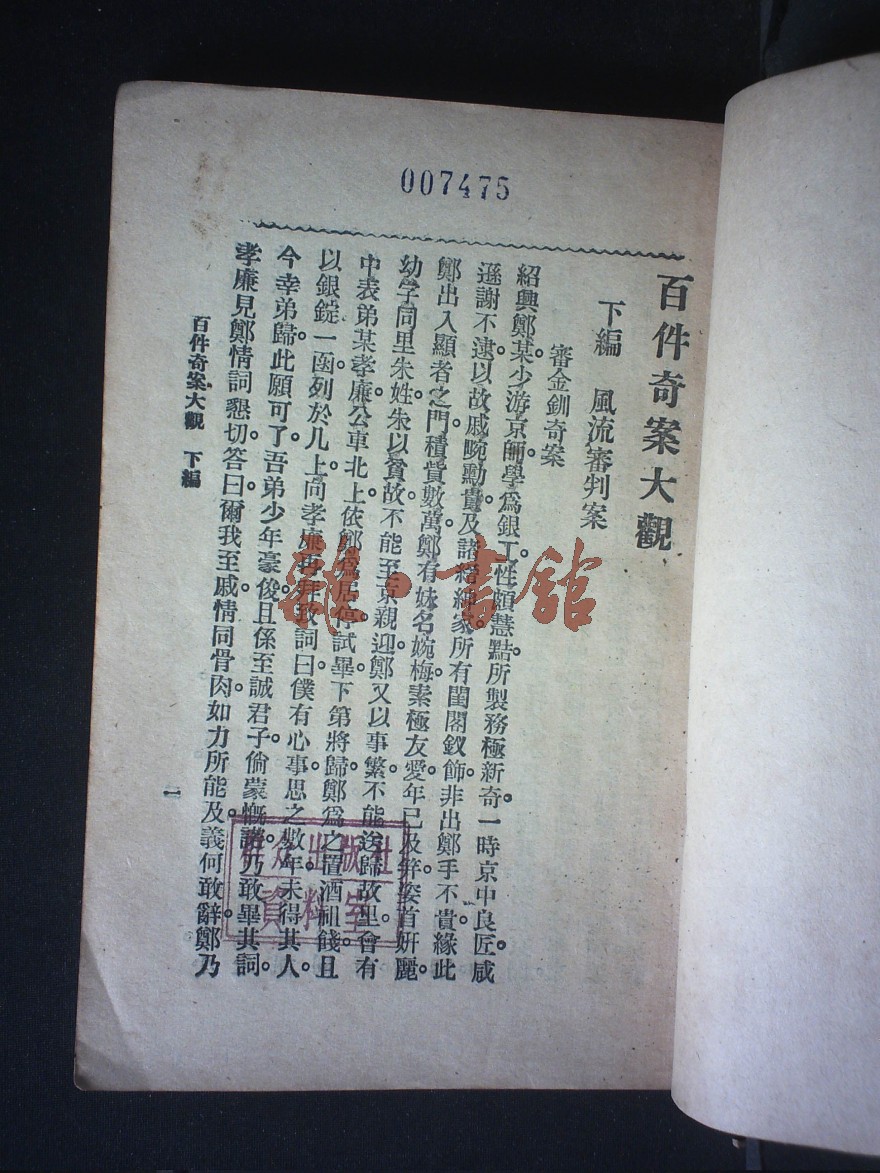 007475
百件奇案大觀
下編　風流審判案
審金釧奇案
紹興鄭某。少游京師。學爲銀工。性頗慧黠。所製務極新奇。一時京中良匠。咸
遜謝不逮。以故戚畹勳貴。及諸縉紳家。所有閨閣釵飾。非出鄭手不貴。緣此
鄭出入顯者之門。積貲數萬。鄭有妹名婉梅。素極友愛。年已及笄。姿首姸麗。
幼字同里朱姓。朱以貧故。不能至京親迎。鄭又以事繁。不能送歸故里。會有
中表弟某孝廉。公車北上。依鄭爲居停。試畢下第。將歸。鄭爲之置酒祖餞。且
以銀錠一函。列於几上。向孝廉再拜致詞曰。僕有心事。思之數年。未得其人。
今幸弟歸。此願可了。吾弟少年豪俊。且係至誠君子。倘蒙慨諾。乃敢畢其詞。
孝廉見鄭情詞懇切。答曰。爾我至戚。情同骨肉。如力所能及。義何敢辭。鄭乃
百件奇案大觀　下編
一
雜·書館
羣众出版社
資料室